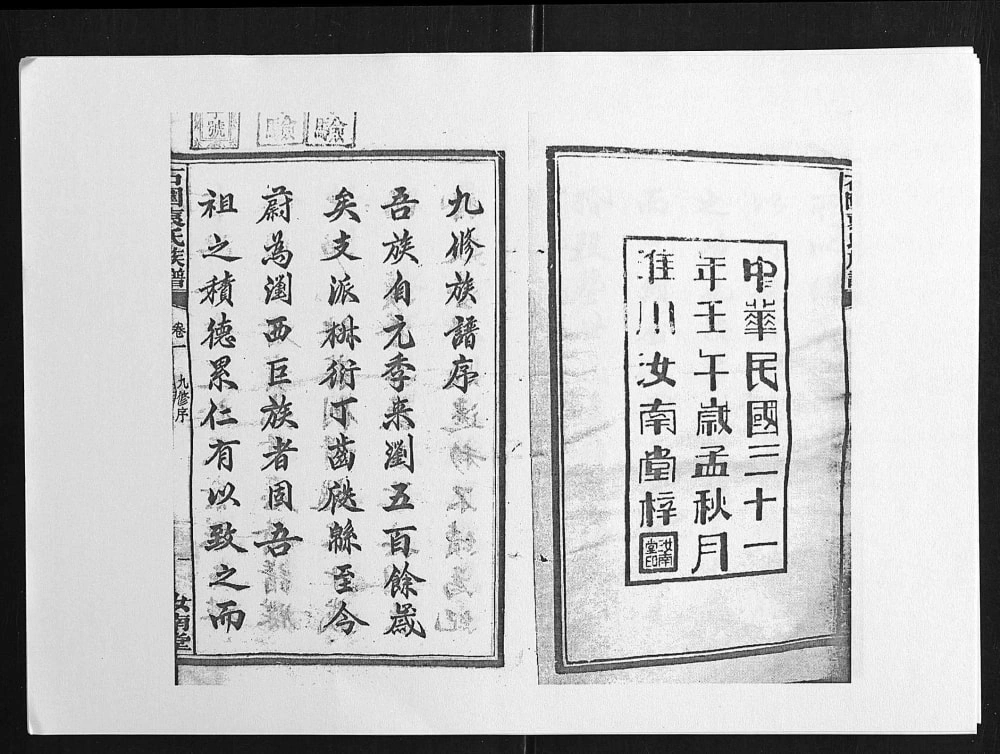 中華民國三十一
年壬午歲孟秋月
淮川汝南堂梓
汝南堂印
九修族譜序
吾族自元季来瀏五百餘歲
矣支派栁衍丁齒緜至今
蔚為瀏西巨族者固吾
祖之積德累仁有以致之而
石園袁氏族譜
卷一
九修序
一
汝南堂
號
驗
驗